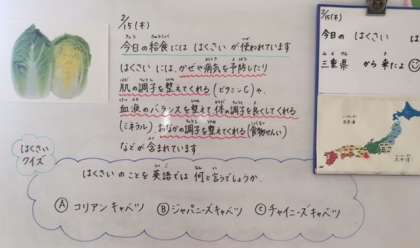 2/15(木)
今日の給食には はくさいが使われています
はくさいには、かぜや病気を予防したり
肌の調子を整えてくれる(ビタミンC)や、
血液のバランスを整えて体の調子を良くしてくれる
(ミネラル)、おなかの調子を整えてくれる(食物せんい)
などが含まれています
はくさい
クイズ
はくさいのことを英語では何と言うでしょうか
Ⓐ コリアンキャベツ Ⓑ ジャパニーズキャベツ Ⓒ チャイニーズキャベツ
2/15(木)
今日の はくさい は
三重県 から来たよ